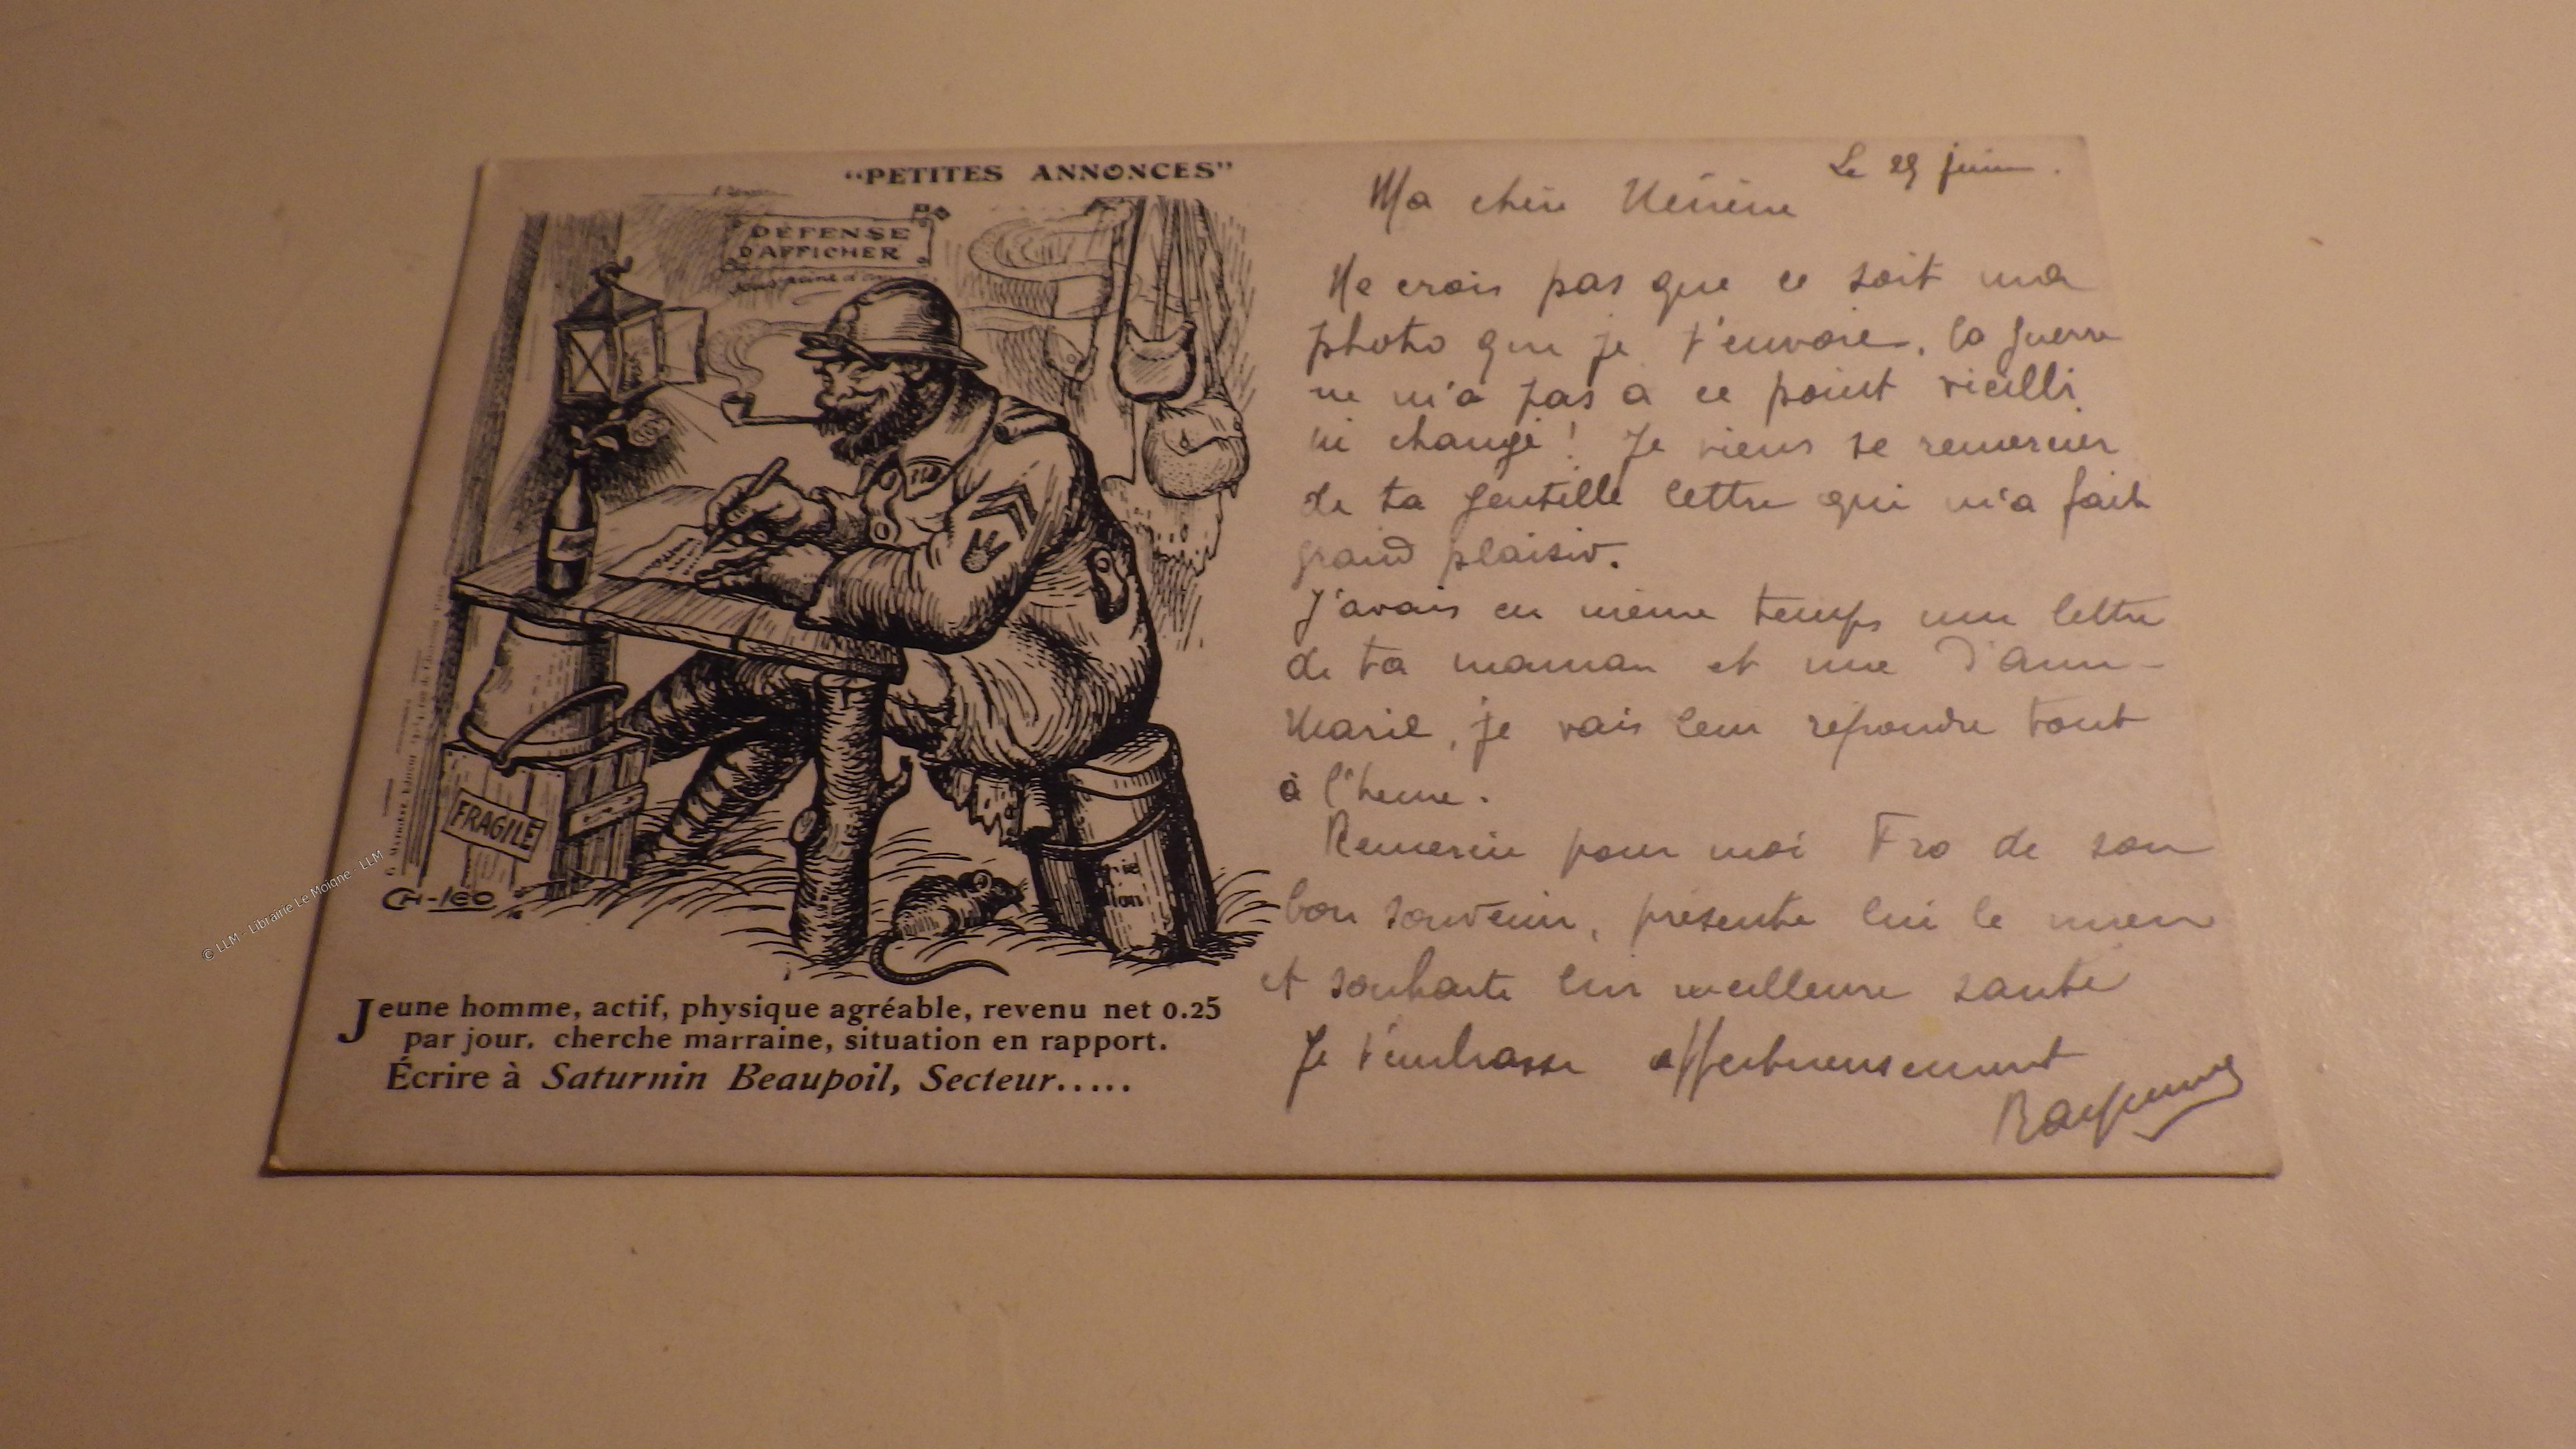 “PETITES ANNONCES”
DÉFENSE
D'AFFICHER
sous peine d'
FRAGILE
CH-LEO
Jeune homme, actif, physique agréable, revenu net 0.25
par jour. cherche marraine, situation en rapport.
Écrire à Saturnin Beaupoil, Secteur.....
Le 29 juin.
Ma chère
Ne crois pas que ce soit ma
photo que je t'envoie, la guerre
ne m'a pas a ce point vieilli
ni changé ! Je viens te remercier
de ta gentille lettre qui m'a fait
grand plaisir.
J'avais en même temps une lettre
de ta maman et une d'Anne-
Marie, je vais leur répondre tout
à l'heure.
Remercie pour moi Fro de son
bon souvenir, présente lui le mien
et souhaite lui meilleure santé
Je t'embrasse affectueusement
Raymond
© LLM - Librairie Le Moigne - LLM